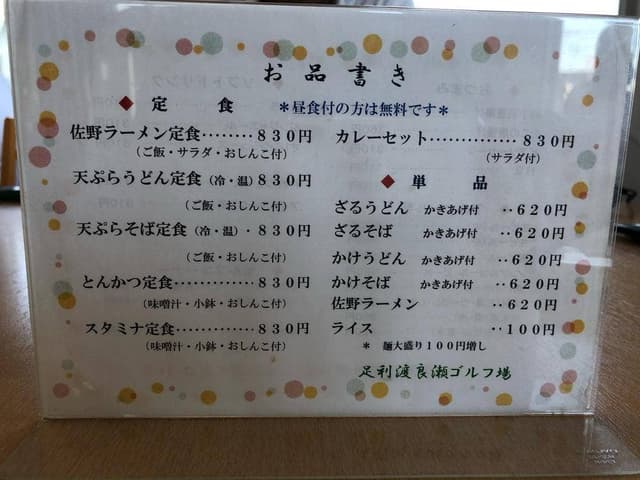 お品書き
◆ 定 食 ＊昼食付の方は無料です＊
佐野ラーメン定食‥‥‥‥８３０円
（ご飯・サラダ・おしんこ付）
天ぷらうどん定食（冷・温）８３０円
（ご飯・おしんこ付）
天ぷらそば定食（冷・温）・８３０円
（ご飯・おしんこ付）
とんかつ定食‥‥‥‥‥‥８３０円
（味噌汁・小鉢・おしんこ付）
スタミナ定食‥‥‥‥‥‥８３０円
（味噌汁・小鉢・おしんこ付）
カレーセット‥‥‥‥‥‥８３０円
（サラダ付）
◆ 単 品
ざるうどん かきあげ付 ‥６２０円
ざるそば かきあげ付 ‥６２０円
かけうどん かきあげ付 ‥６２０円
かけそば かきあげ付 ‥６２０円
佐野ラーメン ‥６２０円
ライス ‥１００円
＊ 麺大盛り１００円増し
足利渡良瀬ゴルフ場